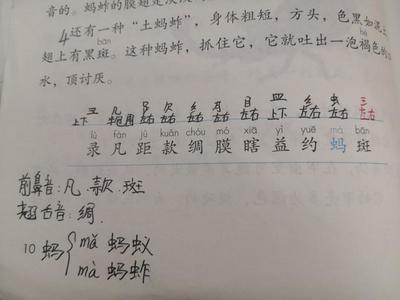 音的。蚂蚱的膜翅是
4还有一种“土蚂蚱”，身体粗短，方头，色黑如泥土
bān
hè
翅上有黑斑。这种蚂蚱，抓住它，它就吐出一泡褐色的
水，顶讨厌。
上下 左右 左右 左右 左右 左右 上下 左右 左右 左右
lù fán jù kuǎn chóu mó xiā yì yuē mà bān
录 凡 距 款 绸 膜 瞎 益 约 蚂 斑
前鼻音：凡、款、斑
翘舌音：绸
10 蚂
mǎ 蚂蚁
mà 蚂蚱